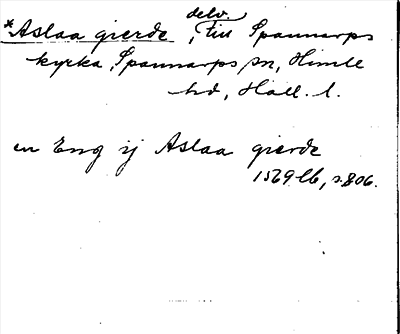 *Aslaa gierde, delv. till Spannarps
kyrka, Spannarps sn, Himle
hd, Hall. l.
en Eng ij Aslaa gierde
1569 lb, s. 806.